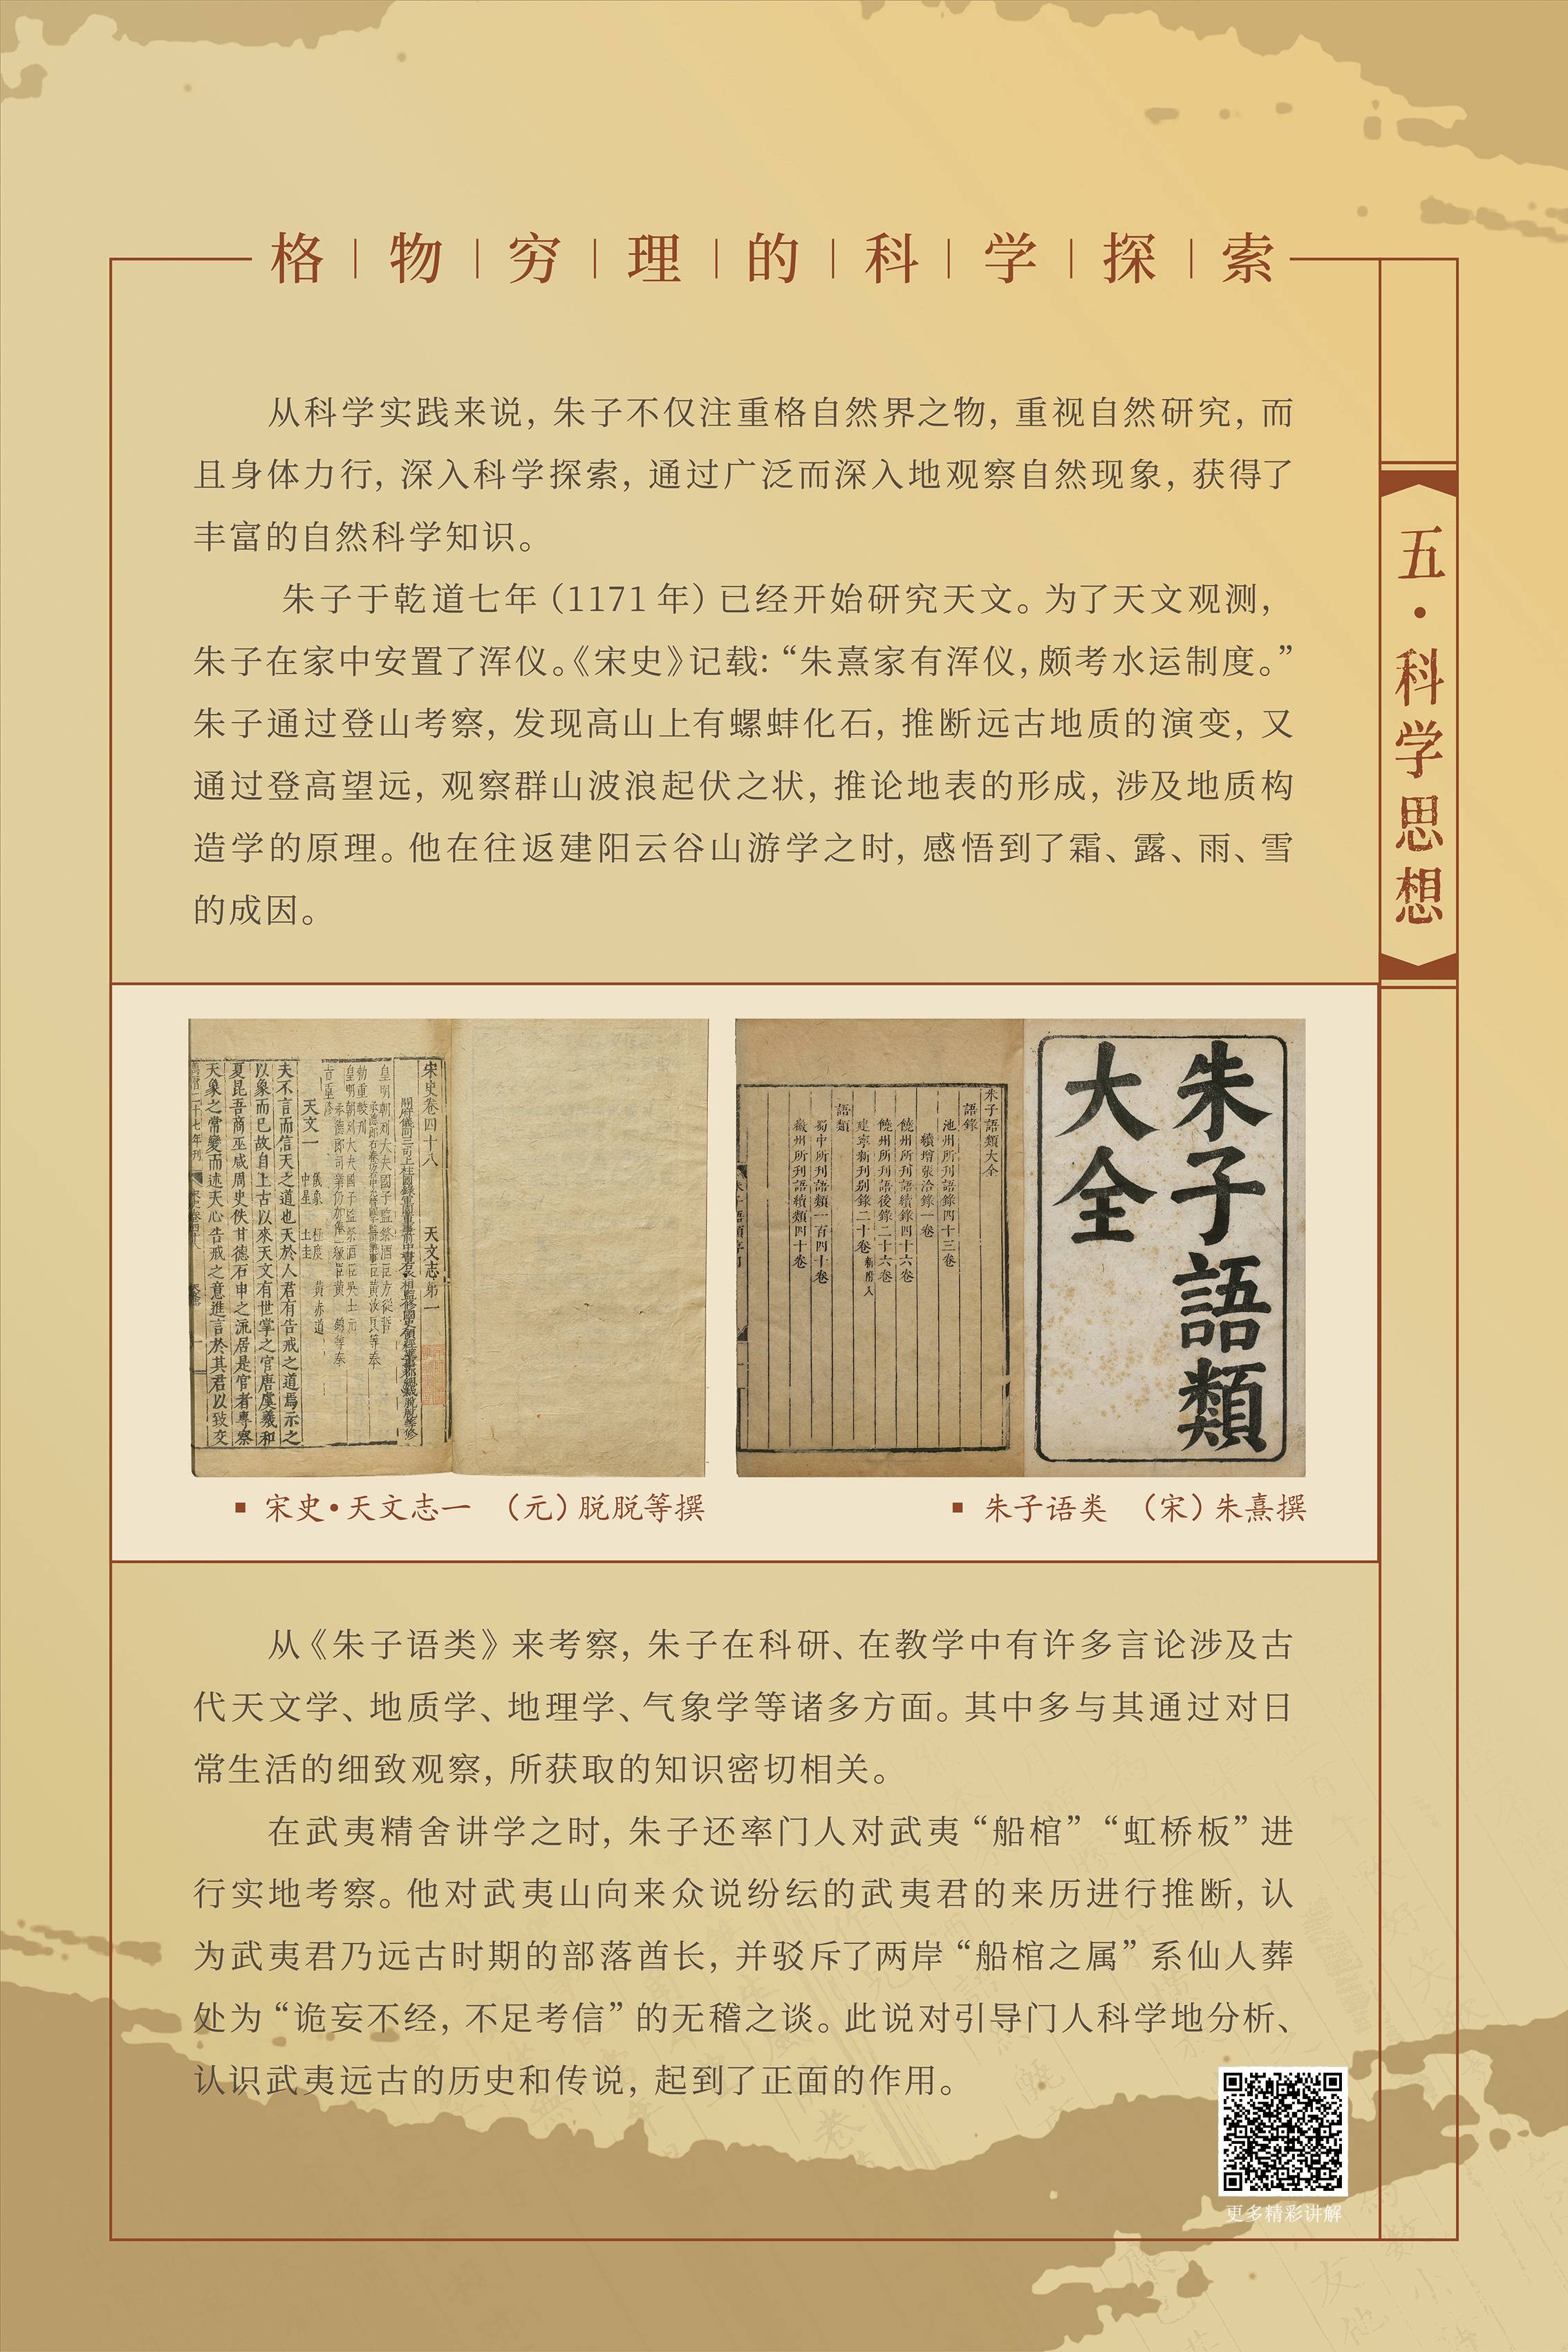 格物穷理的科学探索
五·科学思想
从科学实践来说，朱子不仅注重格自然界之物，重视自然研究，而
且身体力行，深入科学探索，通过广泛而深入地观察自然现象，获得了
丰富的自然科学知识。
朱子于乾道七年（1171 年）已经开始研究天文。为了天文观测，
朱子在家中安置了浑仪。《宋史》记载：“朱熹家有浑仪，颇考水运制度。”
朱子通过登山考察，发现高山上有螺蚌化石，推断远古地质的演变，又
通过登高望远，观察群山波浪起伏之状，推论地表的形成，涉及地质构
造学的原理。他在往返建阳云谷山游学之时，感悟到了霜、露、雨、雪
的成因。
宋史卷四十八
天文志第一
天文一
夫不言而信天之道也天於人君有告戒之道焉示之
以象而已故自上古以來天文有世掌之官唐虞羲和
夏昆吾商巫咸周史佚甘德石申之流居是官者專察
天象之常變而述天心告戒之意進言於其君以致交
朱子語類
大全
朱子語類大全
語錄
池州所刊語錄四十三卷
續增張洽錄一卷
饒州所刊語續錄四十六卷
饒州所刊語後錄二十六卷
建寧新刊別錄二十卷
語類
蜀中所刊語類一百四十卷
徽州所刊語續類四十卷
宋史·天文志一 （元）脱脱等撰
朱子语类 （宋）朱熹撰
从《朱子语类》来考察，朱子在科研、在教学中有许多言论涉及古
代天文学、地质学、地理学、气象学等诸多方面。其中多与其通过对日
常生活的细致观察，所获取的知识密切相关。
在武夷精舍讲学之时，朱子还率门人对武夷“船棺”“虹桥板”进
行实地考察。他对武夷山向来众说纷纭的武夷君的来历进行推断，认
为武夷君乃远古时期的部落酋长，并驳斥了两岸“船棺之属”系仙人葬
处为“诡妄不经，不足考信”的无稽之谈。此说对引导门人科学地分析、
认识武夷远古的历史和传说，起到了正面的作用。
更多精彩讲解